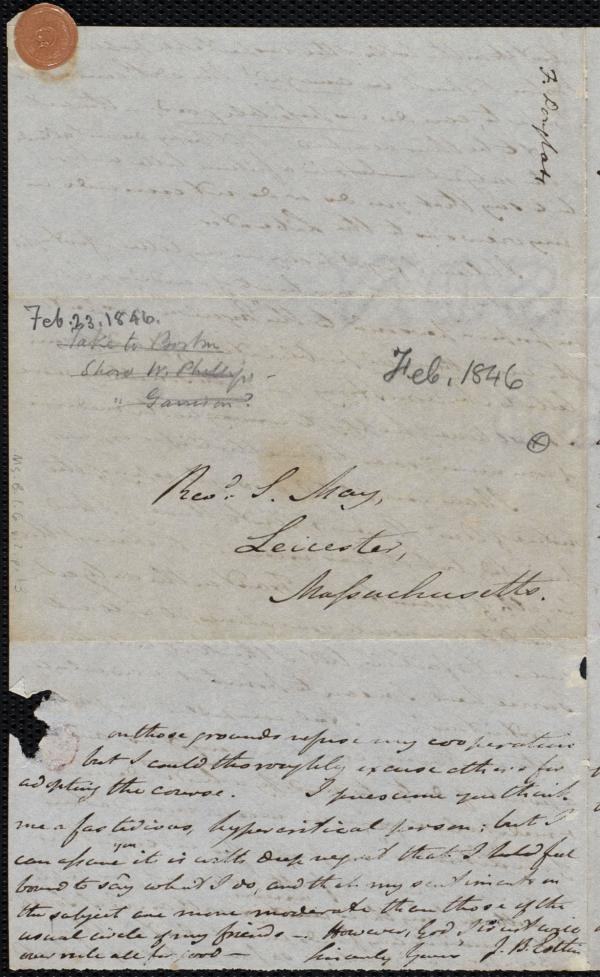 F. Douglass
Feb. 23. 1846.
Take to Boston
Show W. Phillips -
" Garrison?
Feb. 1846
Revd. S. May,
Leicester,
Massachusetts.
on those grounds refuse my cooperation
but I could thoroughly excuse others for
adopting the course. I presume you think
me a fastidious, hypercritical person; but I
can assure you it is with deep regret that I feel
bound to say what I do, and that my sentiments on
the subject are more moderate than those of the
usual circle of my friends — However, God,
over rule all for good — Sincerely Yours J. B. Estlin